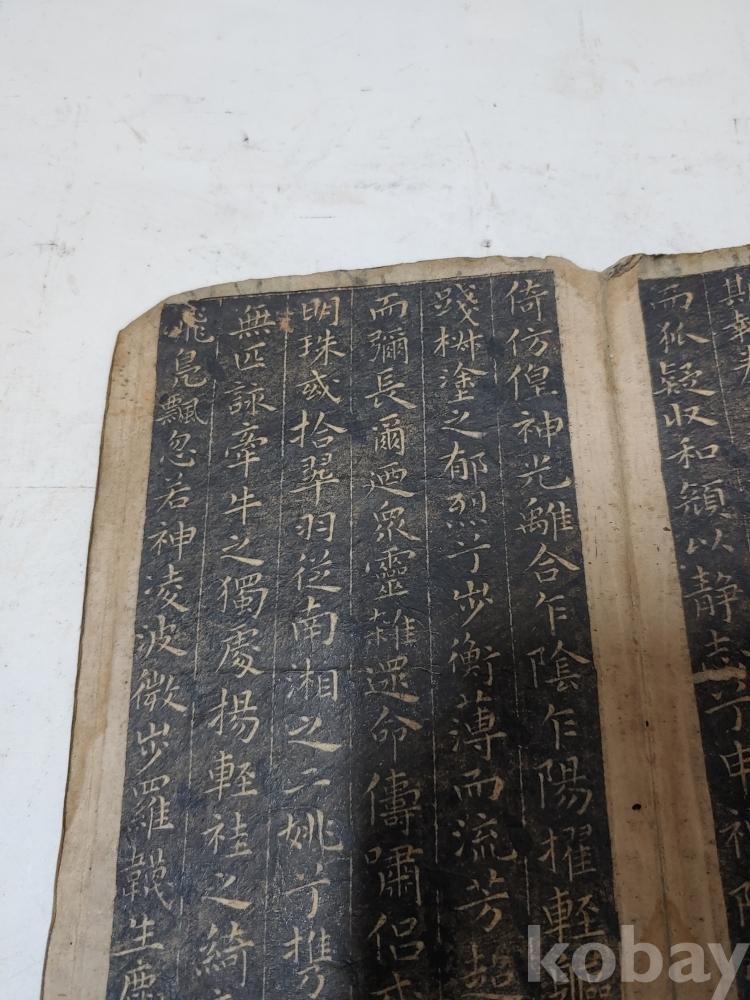 而狐疑収和顔以静志兮申礼
倚仿偟神光離合乍陰乍陽擢輕
踐椒塗之郁烈兮步衡薄而流芳超
而彌長爾迺衆靈雜遝命儔嘯侶或
明珠或拾翠羽從南湘之二姚兮携
無匹詠牽牛之獨處揚輕袿之綺
飛鳧飄忽若神凌波微步羅韈生塵
kobay